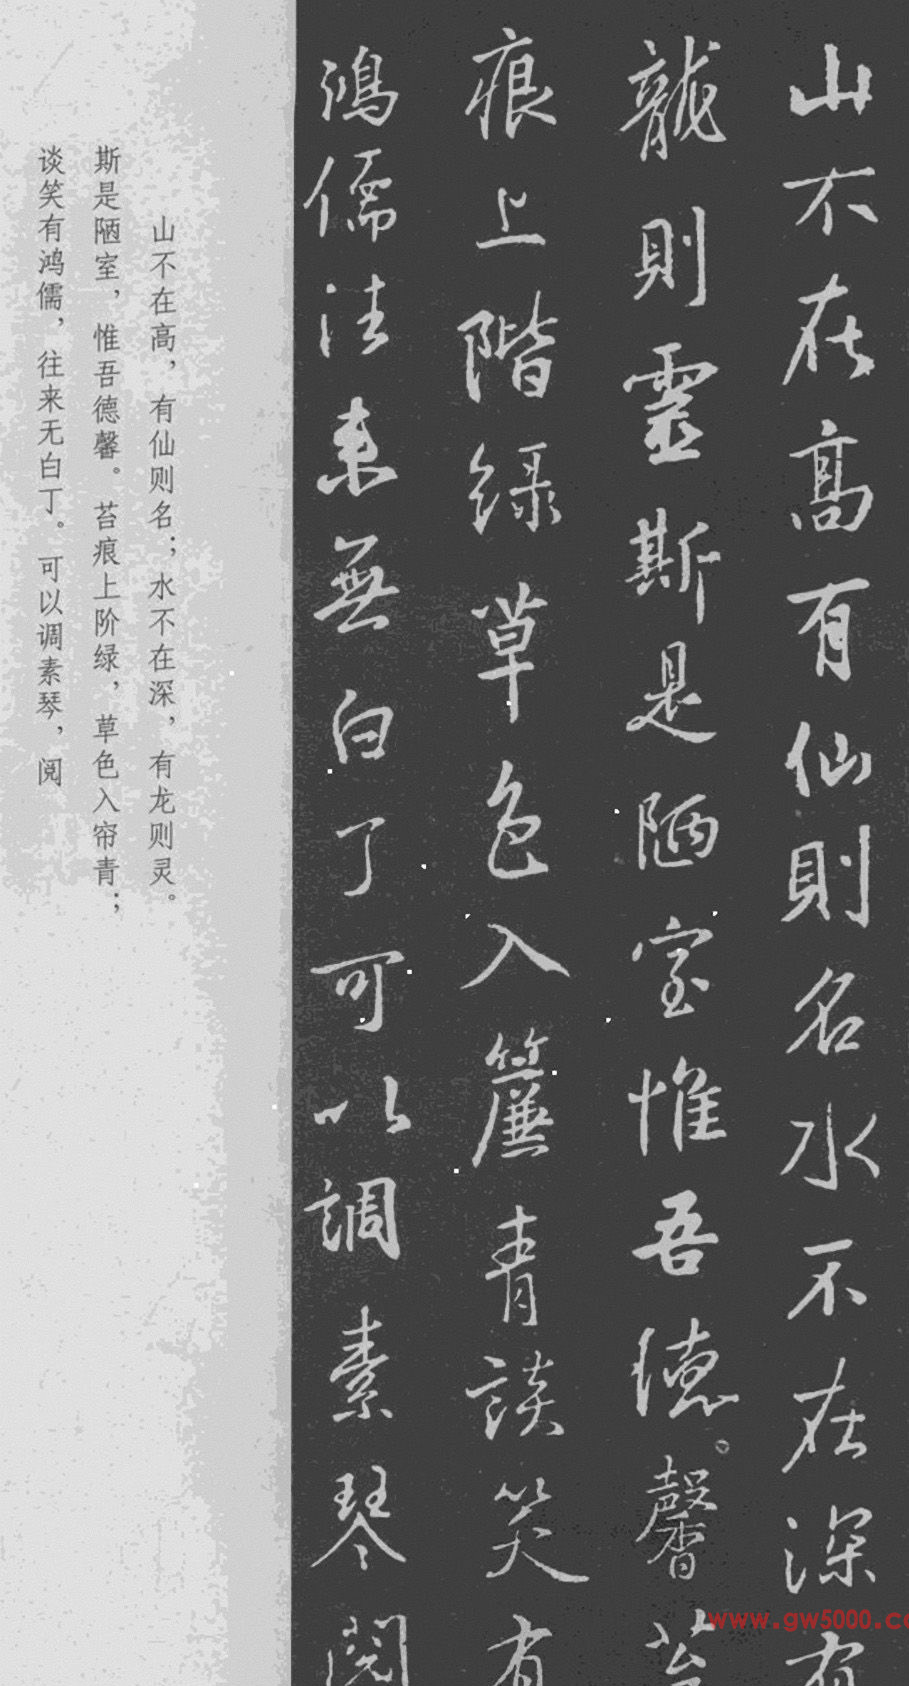 山不在高有仙則名水不在深有
龍則靈斯是陋室惟吾德馨苔
痕上階緑草色入簾青談笑有
鴻儒往来無白丁可以調素琴閲
山不在高，有仙则名；水不在深，有龙则灵。
斯是陋室，惟吾德馨。苔痕上阶绿，草色入帘青；
谈笑有鸿儒，往来无白丁。可以调素琴，阅
www.gw5000.co